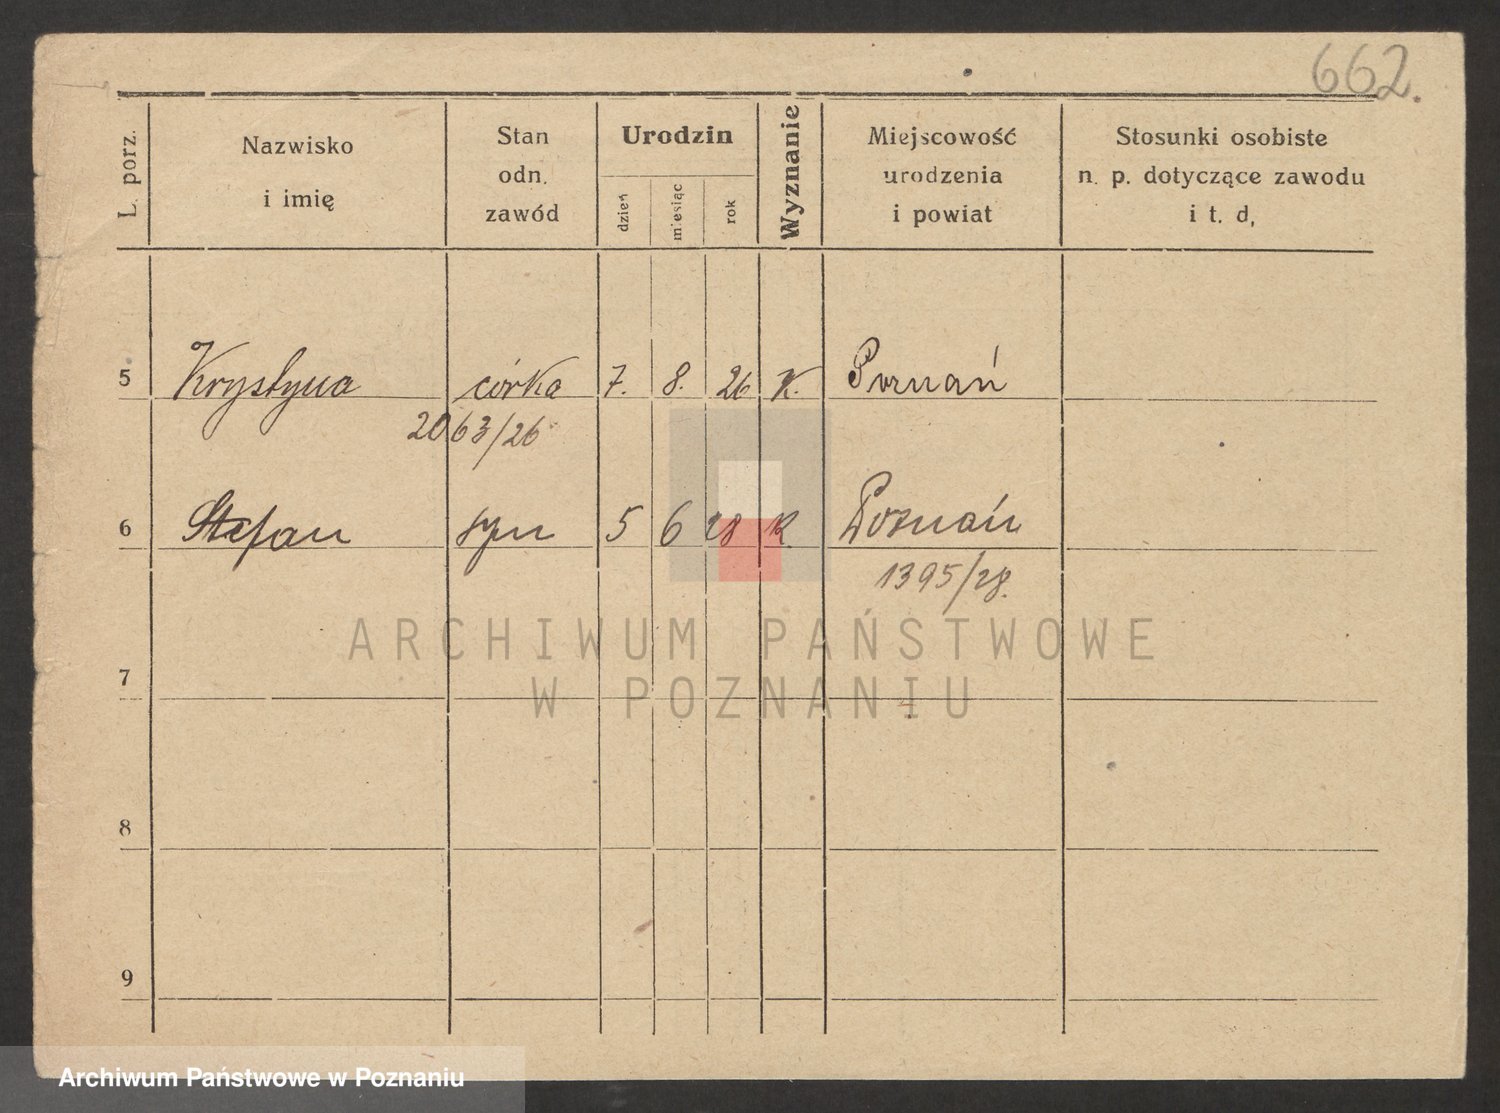 662.
L. porz.
Nazwisko
i imię
Stan
odn.
zawód
Urodzin
dzień
miesiąc
rok
Wyznanie
Miejscowość
urodzenia
i powiat
Stosunki osobiste
n. p. dotyczące zawodu
i t. d,
5 Krystyna córka 7. 8. 26 K. Poznań
2063/26
6 Stefan syn 5 6 28 K. Poznań
1395/28.
7
8
9
ARCHIWUM PAŃSTWOWE
W POZNANIU
Archiwum Państwowe w Poznaniu